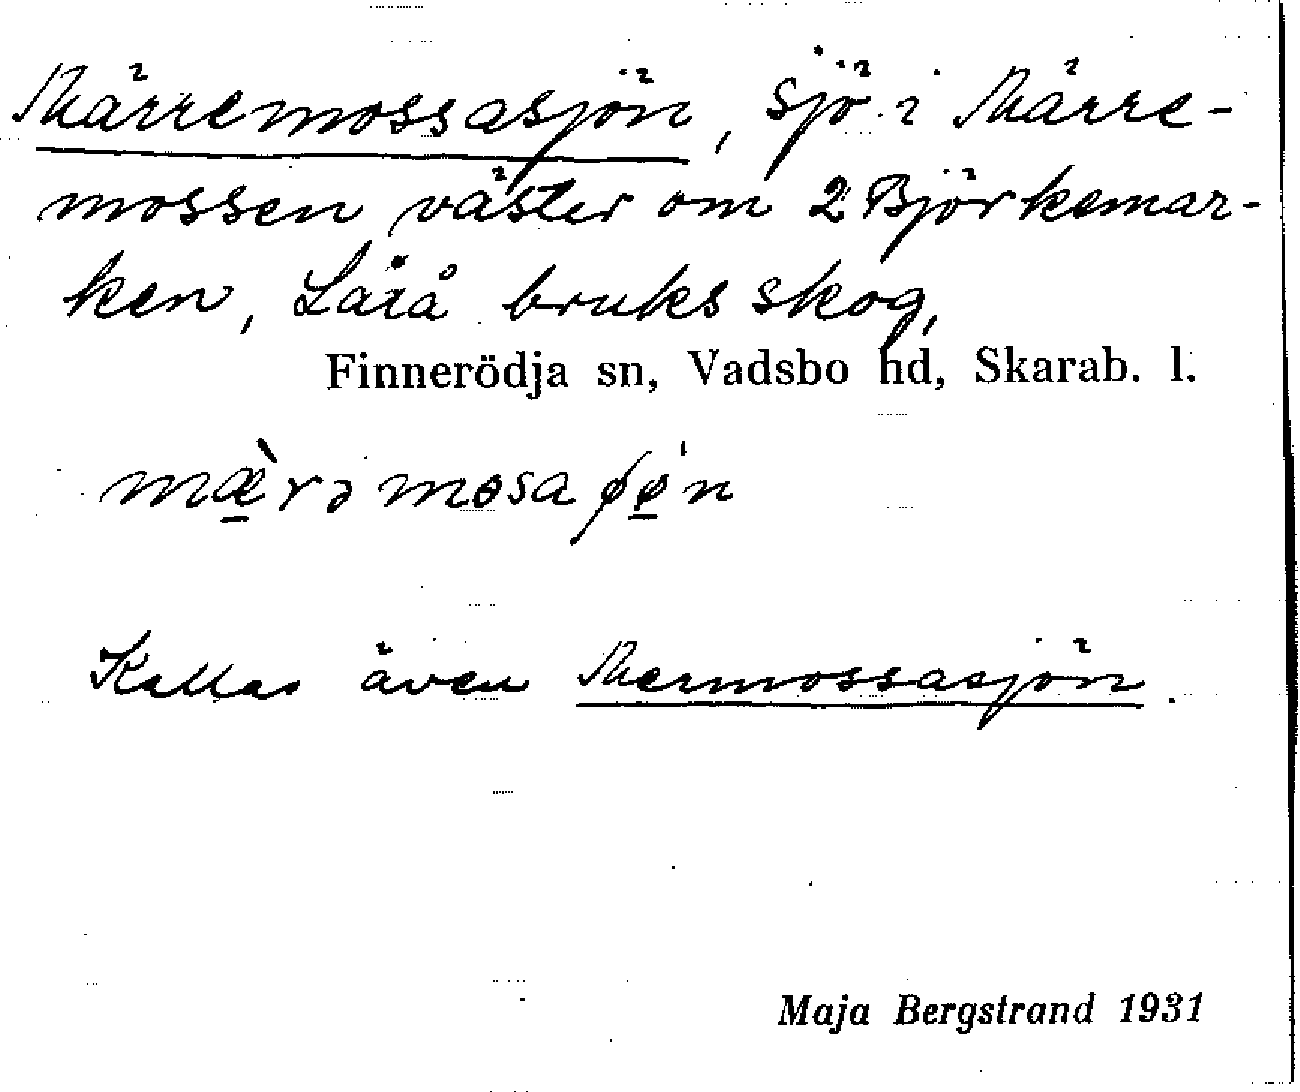 Märremossasjön, sjö i Märre-
mossen väster om 2 Björkemar-
ken, Laxå bruks skog,
Finnerödja sn, Vadsbo hd, Skarab. l.
Kallas även Mermossasjön.
Maja Bergstrand 1931